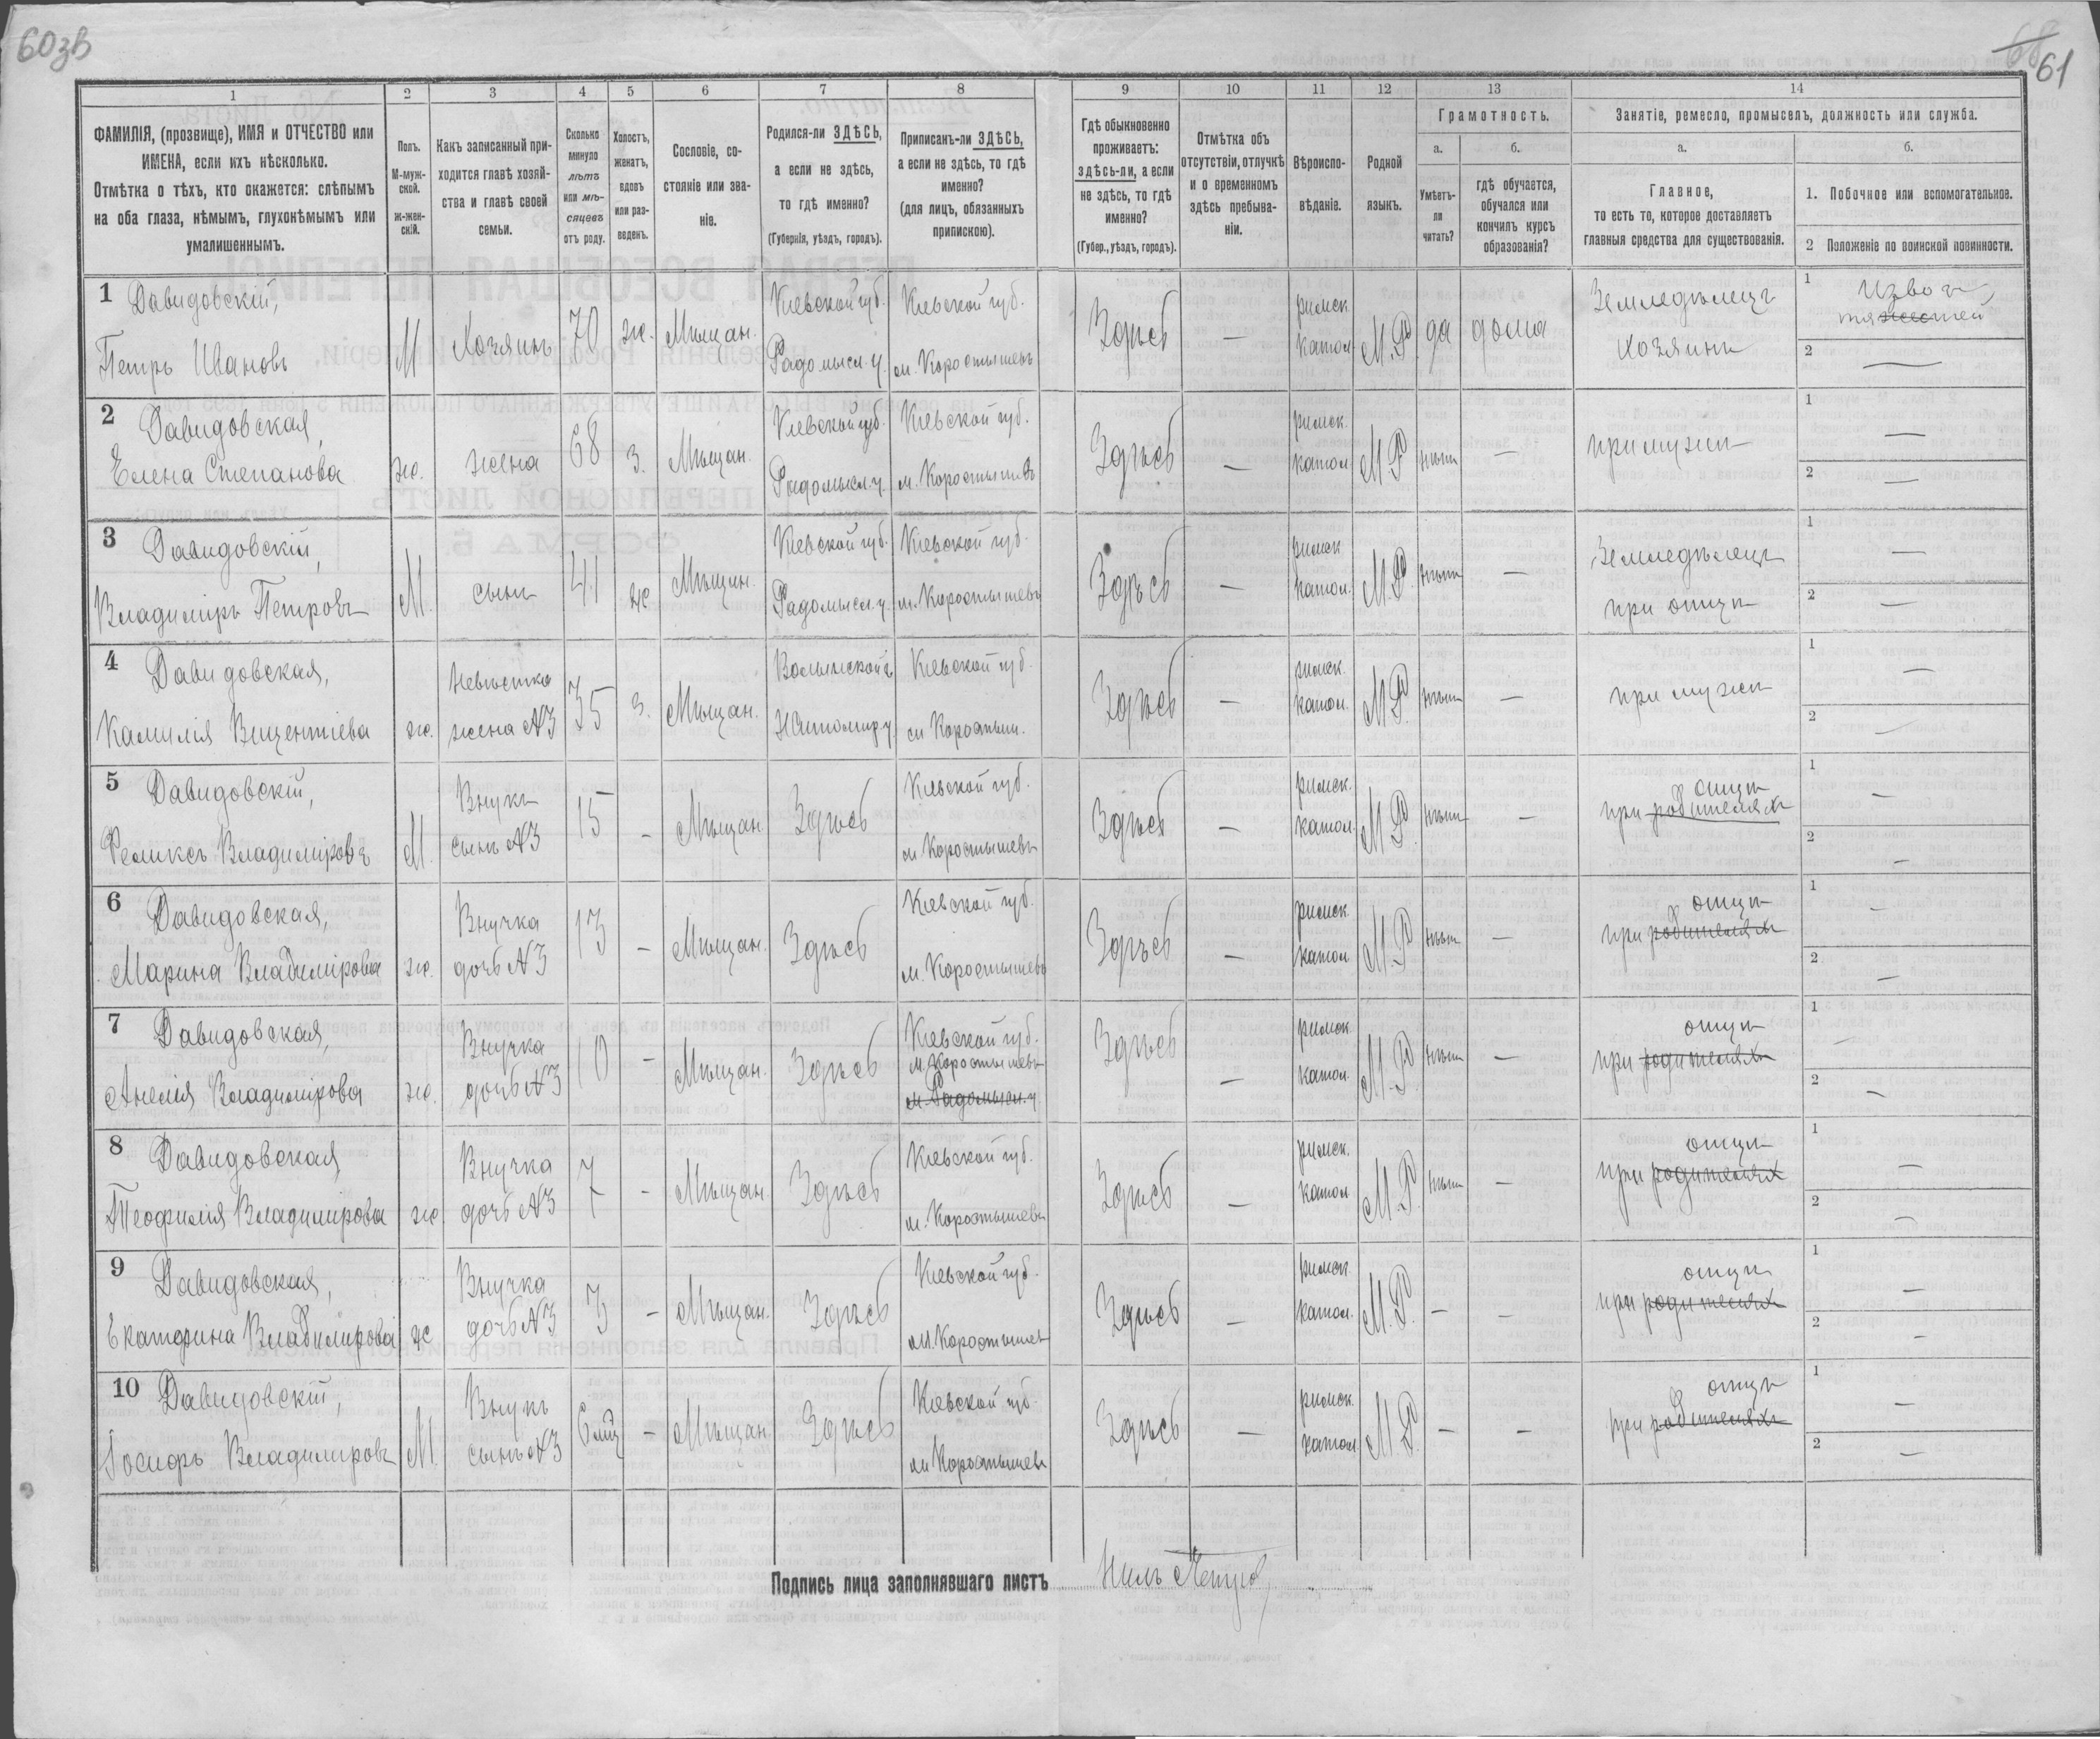 60зв
68
61
1 2 3 4 5 6 7 8 9 10 11 12 13 14
ФАМИЛІЯ, (прозвище), ИМЯ и ОТЧЕСТВО или
ИМЕНА, если ихъ нѣсколько.
Отмѣтка о тѣхъ, кто окажется: слѣпымъ
на оба глаза, нѣмымъ, глухонѣмымъ или
умалишеннымъ.
Полъ.
М-муж-
ской.
Ж-жен-
скій.
Какъ записанный при-
ходится главѣ хозяй-
ства и главѣ своей
семьи.
Сколько
минуло
лѣтъ
или мѣ-
сяцевъ
отъ роду.
Холостъ,
женатъ,
вдовъ
или раз-
веденъ.
Сословіе, со-
стояніе или зва-
ніе.
Родился-ли ЗДѢСЬ,
а если не здѣсь,
то гдѣ именно?
(Губернія, уѣздъ, городъ).
Приписанъ-ли ЗДѢСЬ,
а если не здѣсь, то гдѣ
именно?
(для лицъ, обязанныхъ
припискою).
Гдѣ обыкновенно
проживаетъ:
здѣсь-ли, а если
не здѣсь, то гдѣ
именно?
(Губер., уѣздъ, городъ).
Отмѣтка объ
отсутствіи, отлучкѣ
и о временномъ
здѣсь пребыва-
ніи.
Вѣроиспо-
вѣданіе.
Родной
языкъ.
Грамотность.
а.
Умѣетъ-
ли
читать?
б.
гдѣ обучается,
обучался или
кончилъ курсъ
образованія?
Занятіе, ремесло, промыселъ, должность или служба.
а.
Главное,
то есть то, которое доставляетъ
главныя средства для существованія.
б.
1. Побочное или вспомогательное.
2 Положеніе по воинской повинности.
1 Давидовскій, Кіевской губ. Кіевской губ. римск. Земледѣлецъ 1 Извоз
Петръ Ивановъ М Хозяинъ 70 ж. Мѣщан. Радомысл. у. м. Коростышевъ Здѣсь — катол. М.Р. да дома хозяинъ 2 —
2 Давидовская, Кіевской губ. Кіевской губ. римск. 1 —
Елена Степанова ж. жена 68 З. Мѣщан. Радомысл. у. м. Коростышевъ Здѣсь — катол. М.Р. нѣтъ — при мужѣ 2 —
3 Давидовскій, Кіевской губ. Кіевской губ. римск. Земледѣлецъ 1 —
Владиміръ Петровъ М. сынъ 41 ж Мѣщан. Радомысл. у. м. Коростышевъ Здѣсь — катол. М.Р. нѣтъ — при отцѣ 2 —
4 Давидовская, Невѣстка Волынской г. Кіевской губ. римск. 1 —
Камилія Вицентіева ж. жена №3 35 З. Мѣщан. Житомир. у. м. Коростыш. Здѣсь — катол. М.Р. нѣтъ — при мужѣ 2 —
5 Давидовскій, Внукъ Кіевской губ. римск. отцѣ 1 —
Феликсъ Владиміровъ М. сынъ №3 15 — Мѣщан. Здѣсь м. Коростышевъ Здѣсь — катол. М.Р. нѣтъ — при родителях 2 —
6 Давидовская, Внучка Кіевской губ. римск. отцѣ 1 —
Марина Владимірова ж. дочь №3 13 — Мѣщан. Здѣсь м. Коростышевъ Здѣсь — катол. М.Р. нѣтъ — при родителях 2 —
7 Давидовская, Внучка Кіевской губ. римск. отцѣ 1 —
м. Коростышевъ
Анелія Владимірова ж. дочь №3 10 — Мѣщан. Здѣсь м. Радомысл. у Здѣсь — катол. М.Р. нѣтъ — при родителях 2 —
8 Давидовская, Внучка Кіевской губ. римск. отцѣ 1 —
Теофилія Владимірова ж. дочь №3 7 — Мѣщан. Здѣсь м. Коростышевъ Здѣсь — катол. М.Р. нѣтъ — при родителях 2 —
9 Давидовская, Внучка Кіевской губ. римск. отцѣ 1 —
Екатерина Владимірова ж дочь №3 3 — Мѣщан. Здѣсь м. Коростышев Здѣсь — катол. М.Р. — — при родителях 2 —
10 Давидовскій, Внукъ Кіевской губ. римск. отцѣ 1 —
Іосифъ Владиміровъ М. сынъ №3 6 мц — Мѣщан. Здѣсь м. Коростышевъ Здѣсь — катол. М.Р. — — при родителях 2 —
Подпись лица заполнявшаго листъ